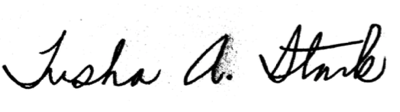 Tusha A. Stark